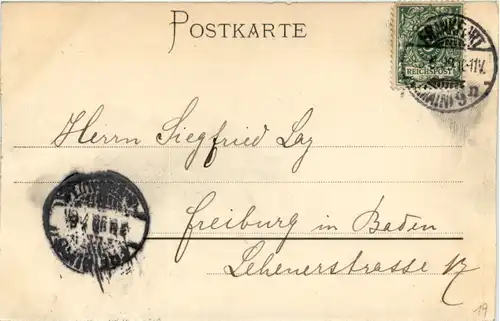 POSTKARTE
REICHSPOST
FRANKFURT
(MAIN) 9
Herrn Siegfried Lay
Freiburg in Baden
Lehenerstrasse 17
19